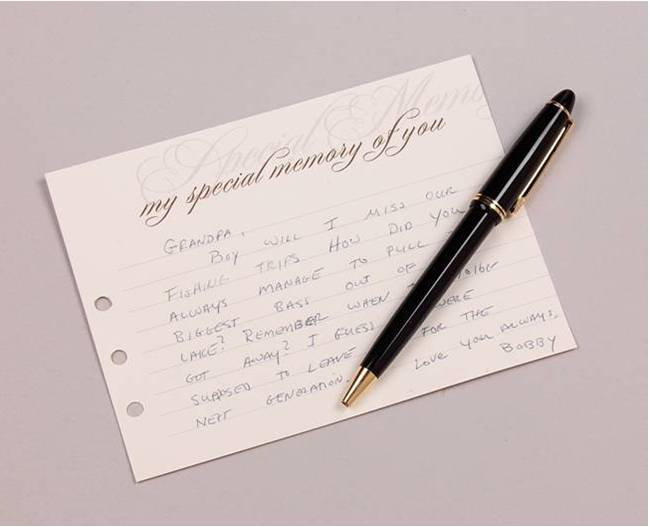 Special Memo
my special memory of you
GRANDPA,
BOY WILL I MISS OUR
FISHING TRIPS HOW DID YOU
ALWAYS MANAGE TO PULL
BIGGEST BASS OUT OF
LAKE? REMEMBER WHEN
GOT AWAY? I GUESS WERE
SUPPOSED TO LEAVE FOR THE
NEXT GENERATION. LOVE YOU ALWAYS,
BOBBY